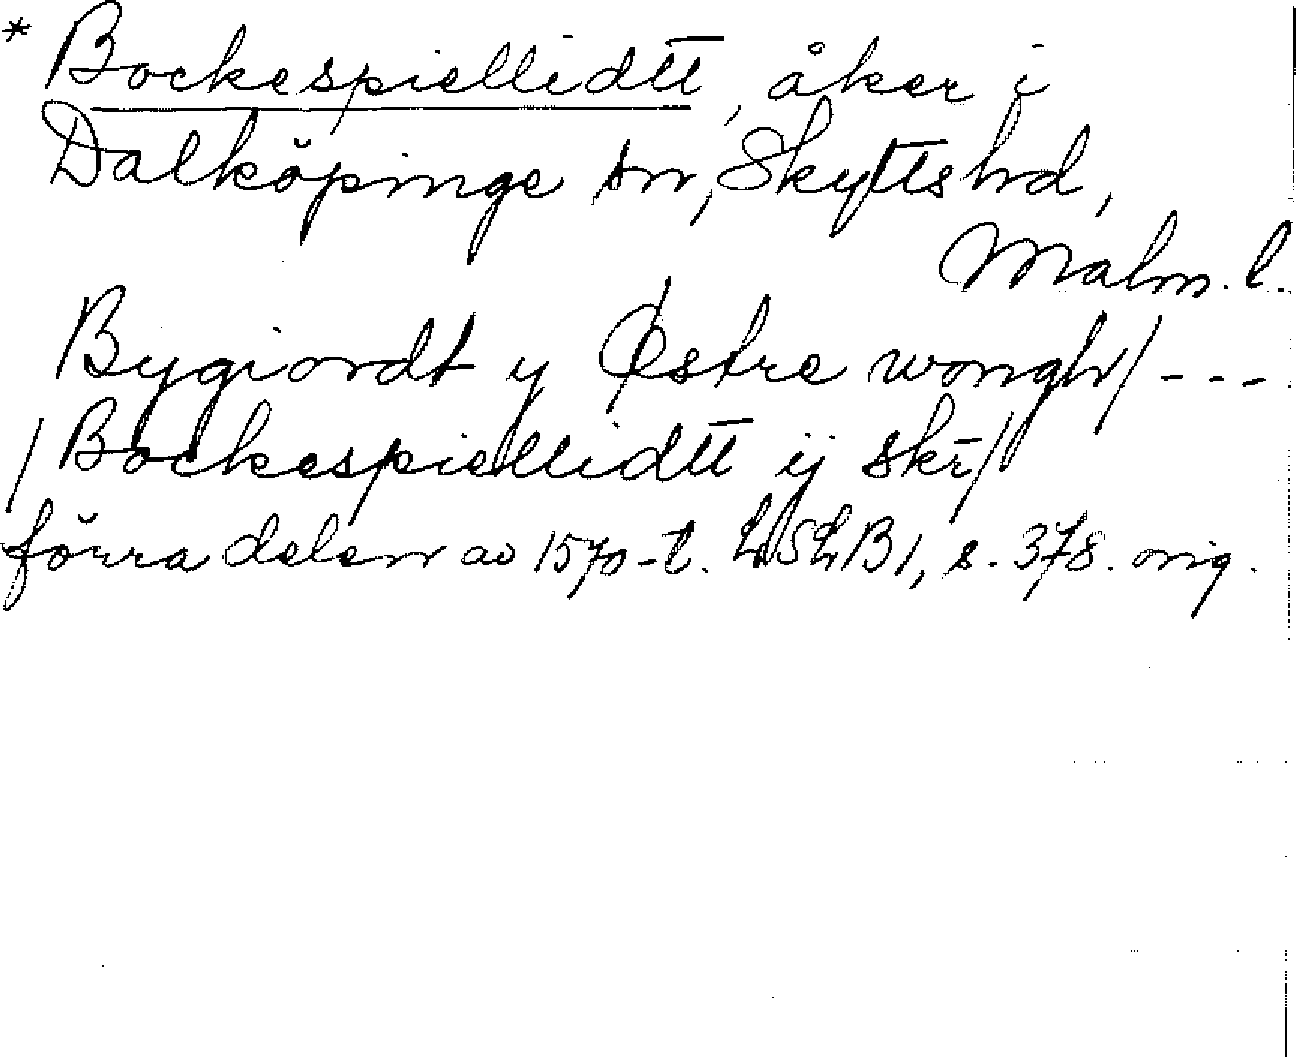 * Bockespiellidtt, åker i
Dalköpinge sn, Skytts hd,
Malm. l.
Bygiordt y Østre wongh/ ---
/Bockespiellidtt ij skr/
förra delen av 1570-t. LSLB1, s. 378. orig.